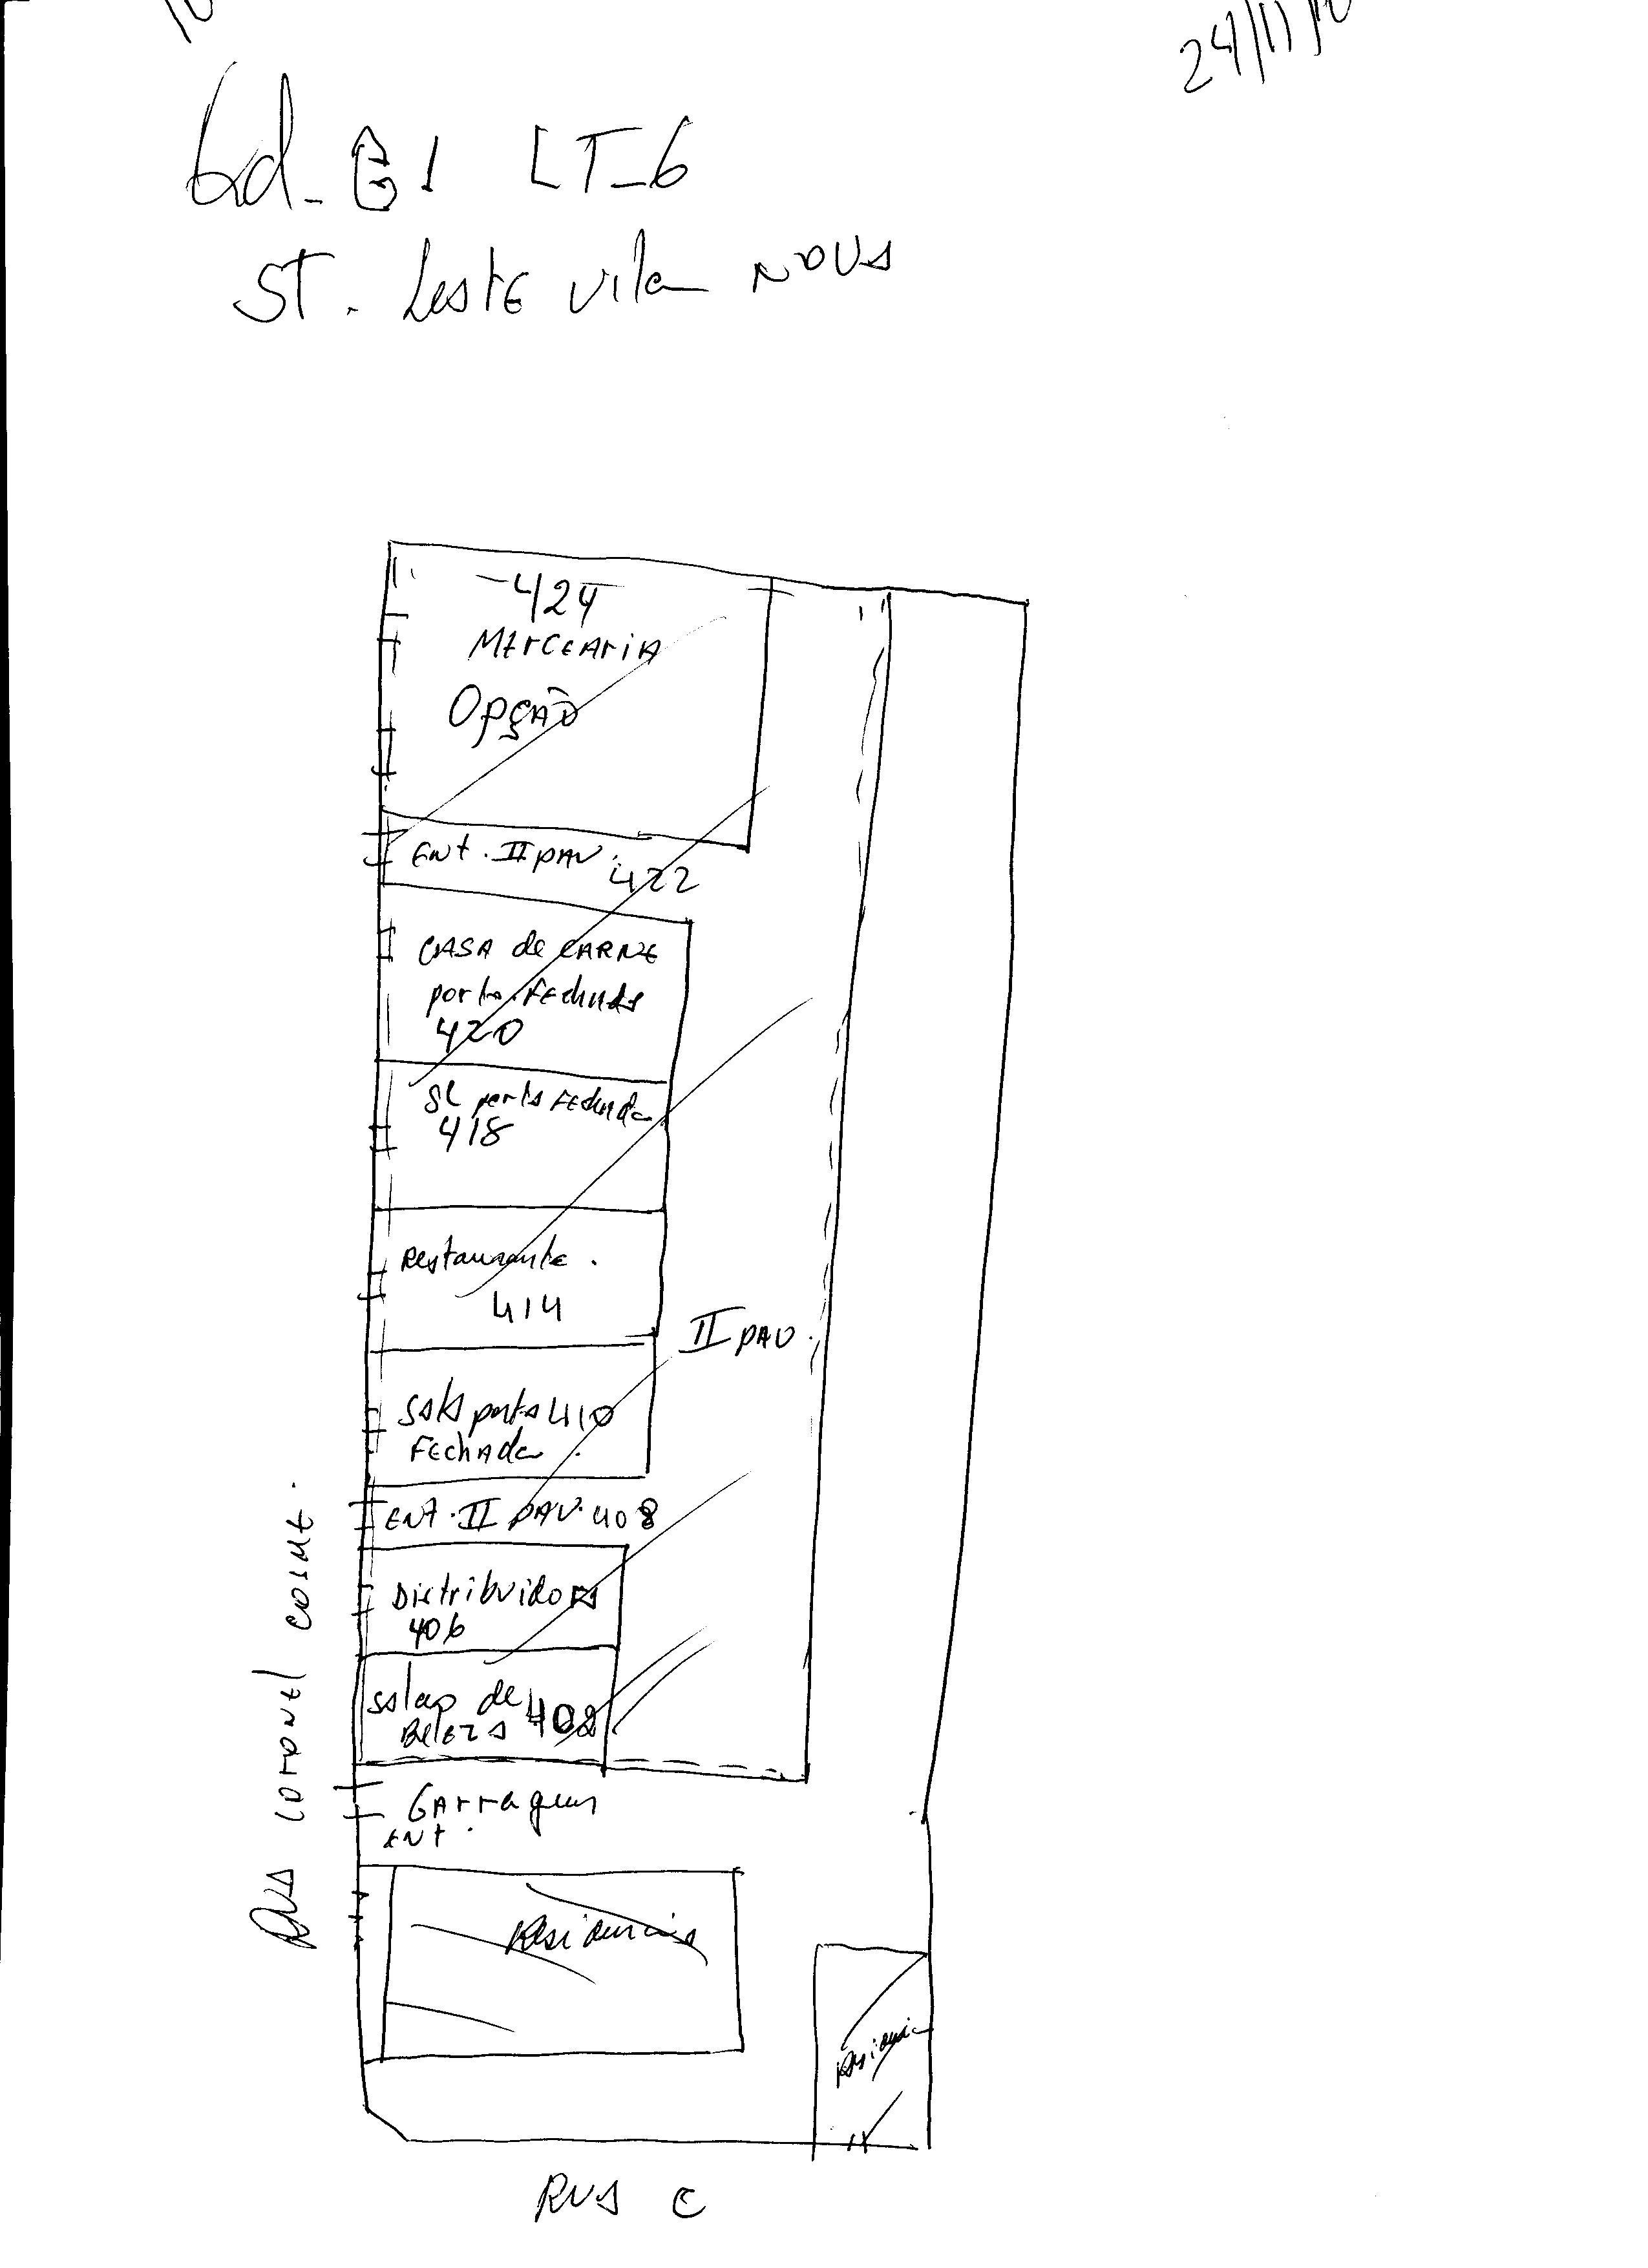 24/11/10
Qd-G1 LT-6
ST. Leste vila NOVA
424
MERCEARIA
OPÇÃO
Ent. II PAV.
422
CASA de CARNE
porta Fechada
420
SL porta Fechada
418
Restaurante.
414
II PAV.
Sala porta 410
Fechada.
ENT. II PAV. 408
Distribuidora
406
Salao de
Beleza 402
Garragem
ENT.
RUA CORONEL COSME.
Residencia
Residencia
RUA C